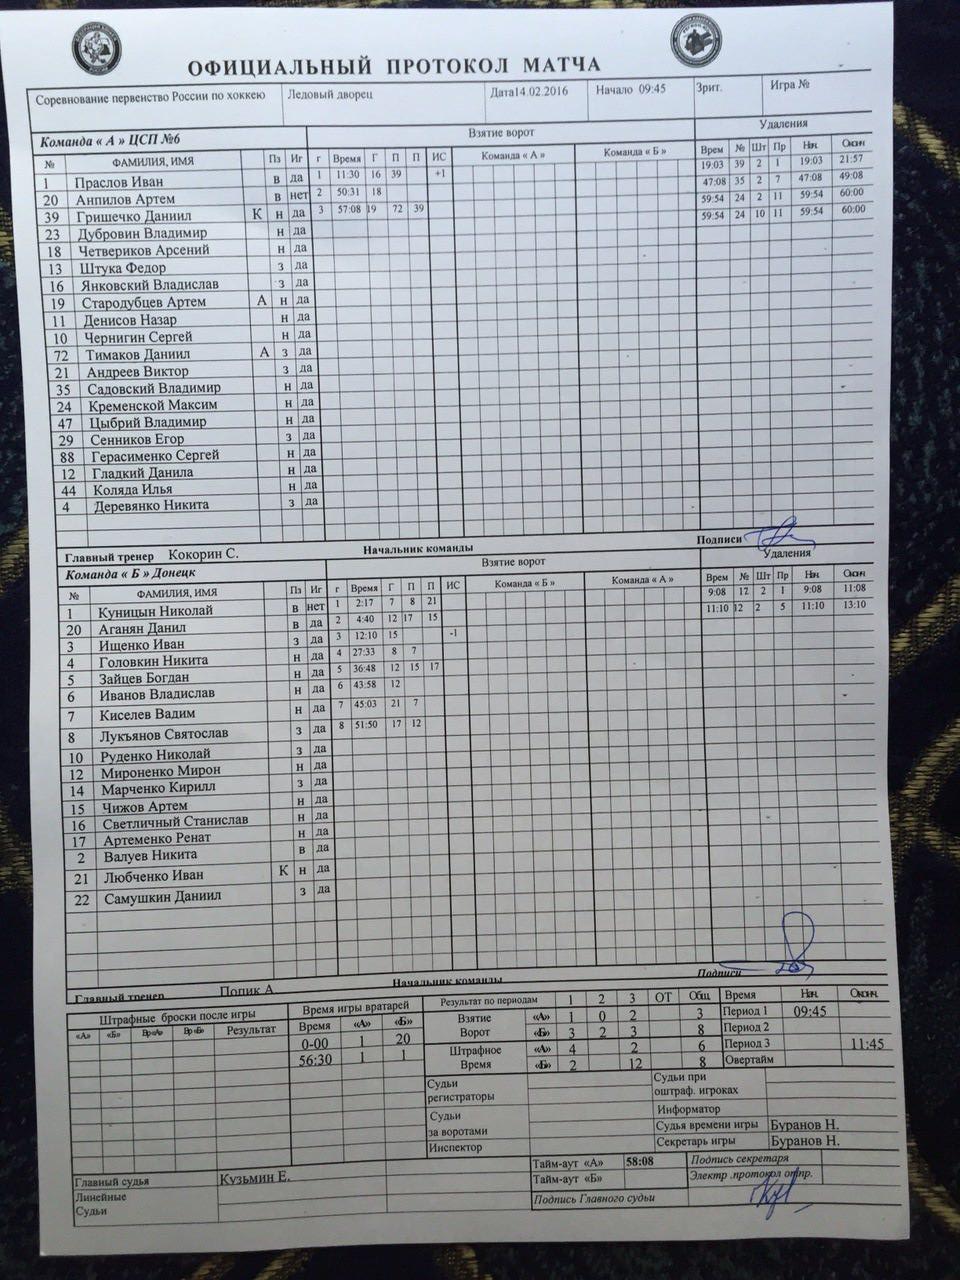 ОФИЦИАЛЬНЫЙ ПРОТОКОЛ МАТЧА
Соревнование первенство России по хоккею Ледовый дворец Дата14.02.2016 Начало 09:45 Зрит. Игра №
Команда « А » ЦСП №6 Взятие ворот Удаления
№ ФАМИЛИЯ, ИМЯ Пз Иг г Время Г П П ИС Команда « А » Команда « Б » Врем № Шт Пр Нач. Оконч
1 Праслов Иван в да 1 11:30 16 39 +1 19:03 39 2 1 19:03 21:57
20 Анпилов Артем в нет 2 50:31 18 47:08 35 2 7 47:08 49:08
39 Гришечко Даниил К н да 3 57:08 19 72 39 59:54 24 2 11 59:54 60:00
23 Дубровин Владимир н да 59:54 24 10 11 59:54 60:00
18 Четвериков Арсений н да
13 Штука Федор з да
16 Янковский Владислав з да
19 Стародубцев Артем А н да
11 Денисов Назар н да
10 Чернигин Сергей н да
72 Тимаков Даниил А з да
21 Андреев Виктор з да
35 Садовский Владимир н да
24 Кременской Максим н да
47 Цыбрий Владимир н да
29 Сенников Егор з да
88 Герасименко Сергей н да
12 Гладкий Данила н да
44 Коляда Илья н да
4 Деревянко Никита з да
Главный тренер Кокорин С. Начальник команды Подписи
Команда « Б » Донецк Взятие ворот Удаления
№ ФАМИЛИЯ, ИМЯ Пз Иг г Время Г П П ИС Команда « Б » Команда « А » Врем № Шт Пр Нач. Оконч
1 Куницын Николай в нет 1 2:17 7 8 21 9:08 12 2 1 9:08 11:08
20 Аганян Данил в да 2 4:40 12 17 15 11:10 12 2 5 11:10 13:10
3 Ищенко Иван з да 3 12:10 15 -1
4 Головкин Никита н да 4 27:33 8 7
5 Зайцев Богдан н да 5 36:48 12 15 17
6 Иванов Владислав н да 6 43:58 12
7 Киселев Вадим н да 7 45:03 21 7
8 Лукъянов Святослав з да 8 51:50 17 12
10 Руденко Николай з да
12 Мироненко Мирон н да
14 Марченко Кирилл з да
15 Чижов Артем н да
16 Светличный Станислав н да
17 Артеменко Ренат н да
2 Валуев Никита в да
21 Любченко Иван К н да
22 Самушкин Даниил з да
Главный тренер Попик А Начальник команды Подписи
Штрафные броски после игры Время игры вратарей Результат по периодам 1 2 3 ОТ Общ Время Нач. Оконч.
«А» «Б» Вр«А» Вр«Б» Результат Время «А» «Б» Взятие Ворот «А» 1 0 2 3 Период 1 09:45
0-00 1 20 «Б» 3 2 3 8 Период 2
56:30 1 1 Штрафное Время «А» 4 2 6 Период 3 11:45
«Б» 2 12 8 Овертайм
Судьи регистраторы Судьи при оштраф. игроках
Судьи за воротами Информатор
Судья времени игры Буранов Н.
Инспектор Секретарь игры Буранов Н.
Главный судья Кузьмин Е. Тайм-аут «А» 58:08 Подпись секретаря
Линейные Судьи Тайм-аут «Б» Электр .протокол отпр.
Подпись Главного судьи